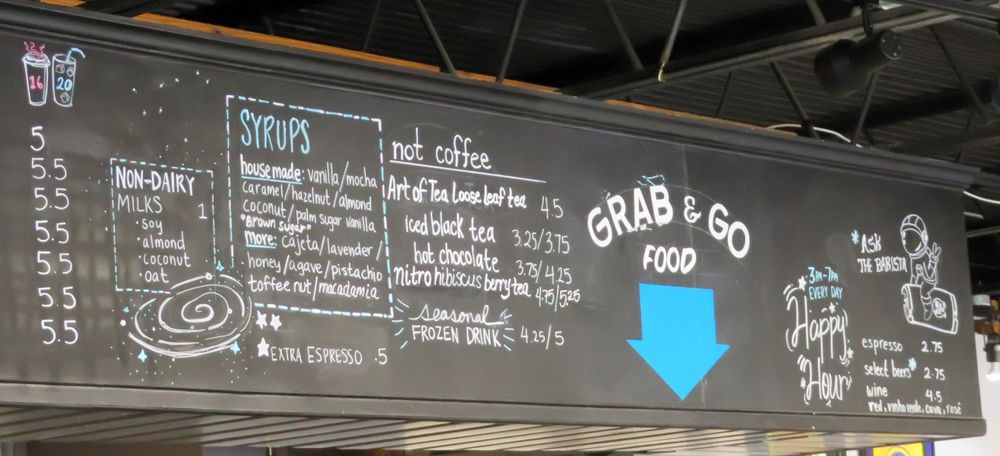 16 20
5
5.5
5.5
5.5
5.5
5.5
5.5
NON-DAIRY
MILKS 1
• soy
• almond
• coconut
• oat
SYRUPS
housemade: vanilla/mocha
caramel/hazelnut/almond
coconut/palm sugar vanilla
"Brown sugar"
more: cajeta/lavender/
honey/agave/pistachio
toffee nut/macadamia
EXTRA ESPRESSO .5
not coffee
Art of Tea Loose leaf tea 4.5
iced black tea 3.25/3.75
hot chocolate 3.75/4.25
nitro hibiscus berry tea 4.75/5.25
seasonal
FROZEN DRINK 4.25/5
GRAB & GO
FOOD
3PM-7PM
EVERY DAY
Happy
Hour
*ASK
THE BARISTA
espresso 2.75
select beers* 2.75
wine 4.5
red, vinho verde, cava, rosé